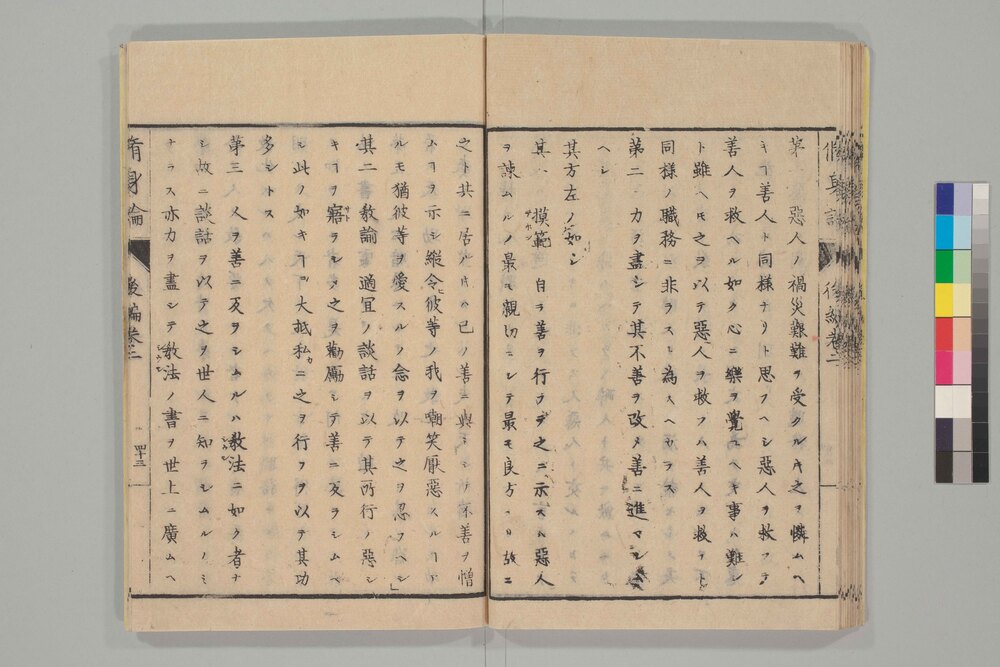 第一 惡人ノ禍災艱難ヲ受クルキ之ヲ憐ムヘ
キヿ善人ト同樣ナリト思フヘシ惡人ヲ救フテ
善人ヲ救ヘル如ク心ニ樂ヲ覺ユヘキ事ハ難シ
ト雖ヘモ之ヲ以テ惡人ヲ救フハ善人ヲ救フト
同樣ノ職務ニ非ラスト為スヘカラス
第二 力ヲ盡シテ其不善ヲ改メ善ニ進マシム
ヘシ
其方左ノ如シ
其一 摸範 自ラ善ヲ行フテ之ニ示スハ惡人
ヲ諫ムルノ最モ親切ニシテ最モ良方ナリ故ニ
之ト共ニ居ル片ハ己ノ善ニ與シテ不善ヲ憎
ムヿヲ示シ縱令ヒ彼等ノ我ヲ嘲笑厭惡スルヿア
ルモ猶彼等ヲ愛スルノ念ヲ以テ之ヲ忍フヘシ
其二 敎諭 適冝ノ談話ヲ以テ其所行ノ惡シ
キヿヲ寤ラシメ之ヲ勸勵シテ善ニ反ラシムヘ
シ此ノ如キヿハ大抵私カニ之ヲ行フヲ以テ其功
多シトス
第三 人ヲ善ニ反ヲシムルハ敎法ニ如ク者ナ
シ故ニ談話ヲ以テ之ヲ世人ニ知ヲシムルノミ
ナラス亦力ヲ盡シテ敎法ノ書ヲ世上ニ廣ムヘ
脩身論 後編卷二 四十三